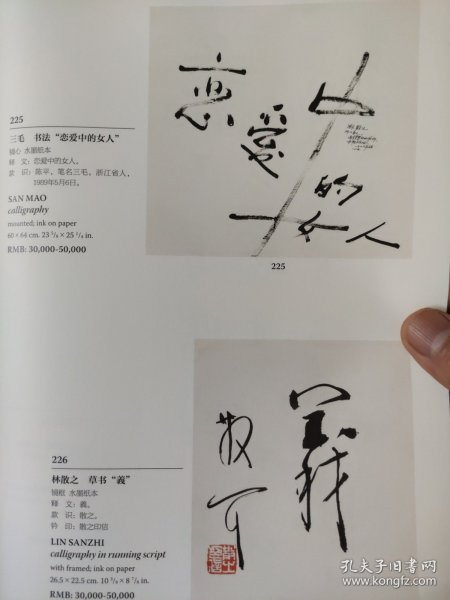 225
三毛 书法“恋爱中的女人”
镜心 水墨纸本
释 文：恋爱中的女人。
款 识：陈平，笔名三毛，浙江省人，
1989年5月6日。
SAN MAO
calligraphy
mounted; ink on paper
60 × 64 cm. 23 5/8 × 25 1/4 in.
RMB: 30,000-50,000
恋爱中的女人
225
226
林散之 草书“義”
镜框 水墨纸本
释 文：義。
款 识：散之。
钤 印：散之印信
LIN SANZHI
calligraphy in running script
with framed; ink on paper
26.5 × 22.5 cm. 10 3/8 × 8 7/8 in.
RMB: 30,000-50,000
義
散之
孔夫子旧书网